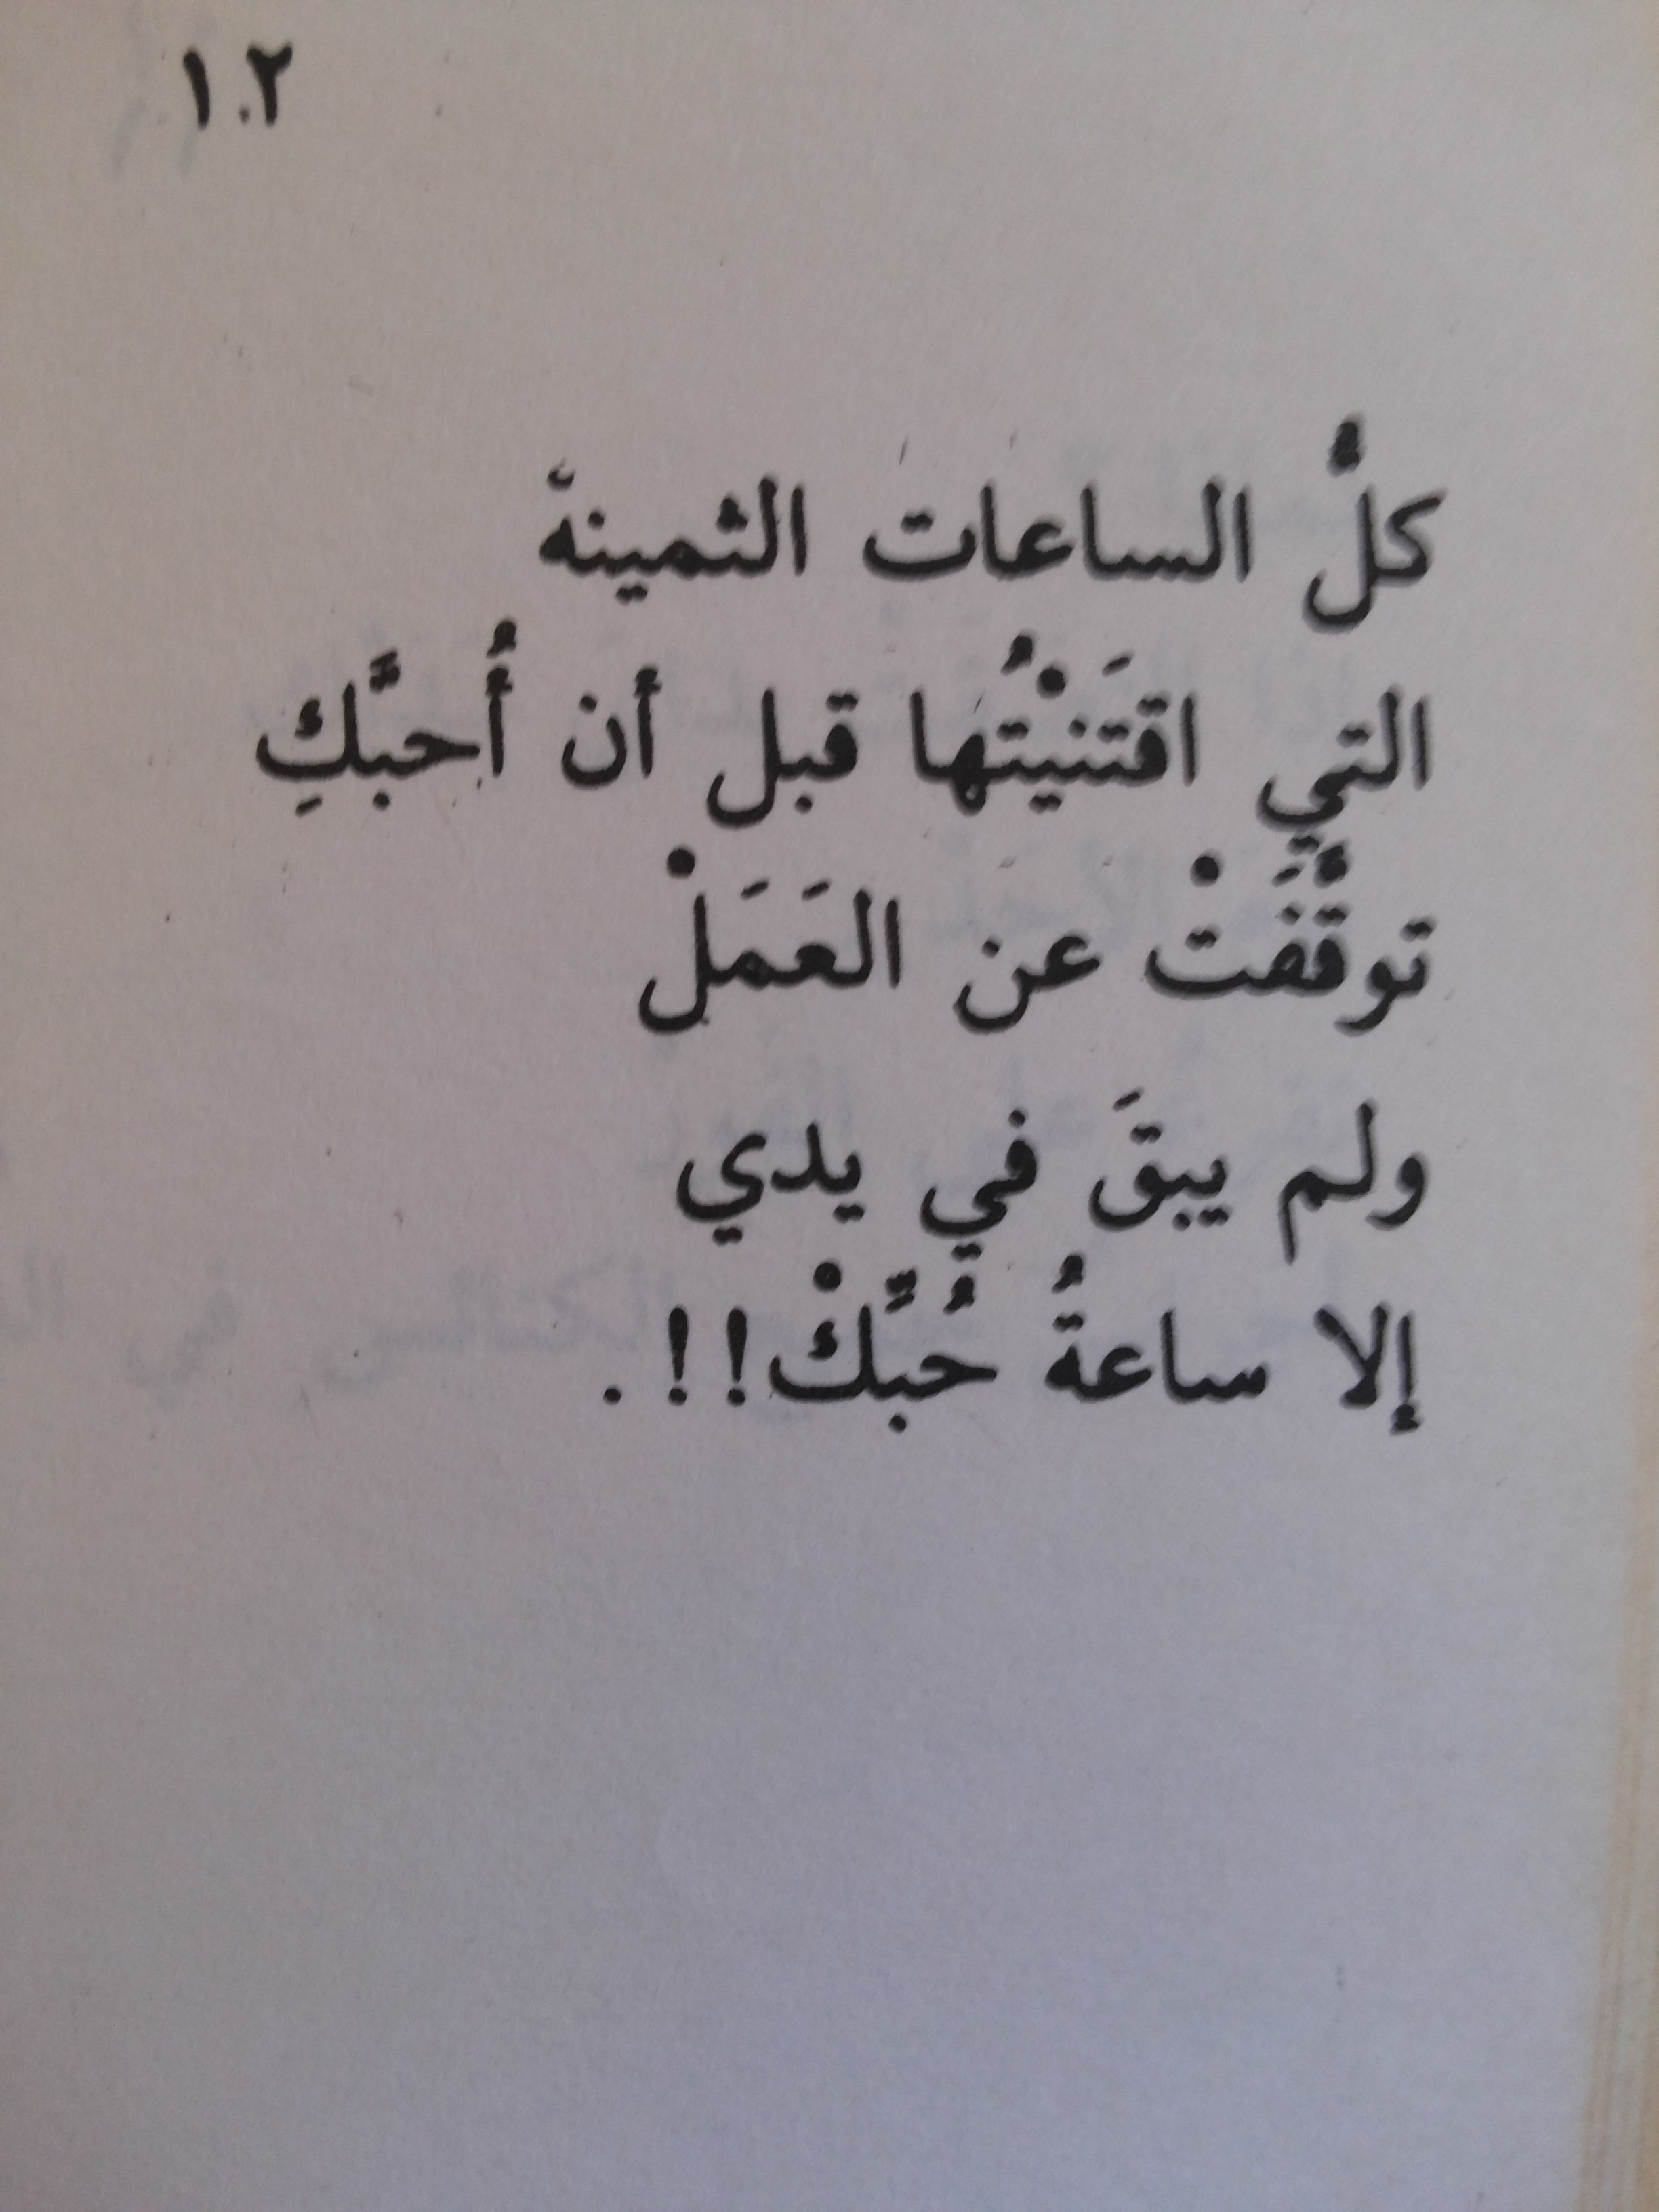 ١٠٢
كلُّ الساعات الثمينة
التي اقتَنيْتُها قبل أن أُحبَّكِ
توقَّفَتْ عن العَمَلْ
ولم يبقَ في يدي
إلا ساعةُ حُبِّكْ!! .